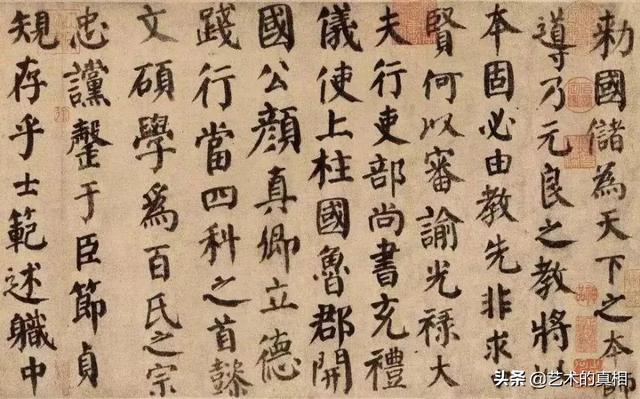 勅國儲為天下之本師
導乃元良之教將以
本固必由教先非求
賢何以審諭光祿大
夫行吏部尚書充禮
儀使上柱國魯郡開
國公顏真卿立德
踐行當四科之首懿
文碩學爲百氏之宗
忠讜罄于臣節貞
規存乎士範述職中
头条 @艺术的真相